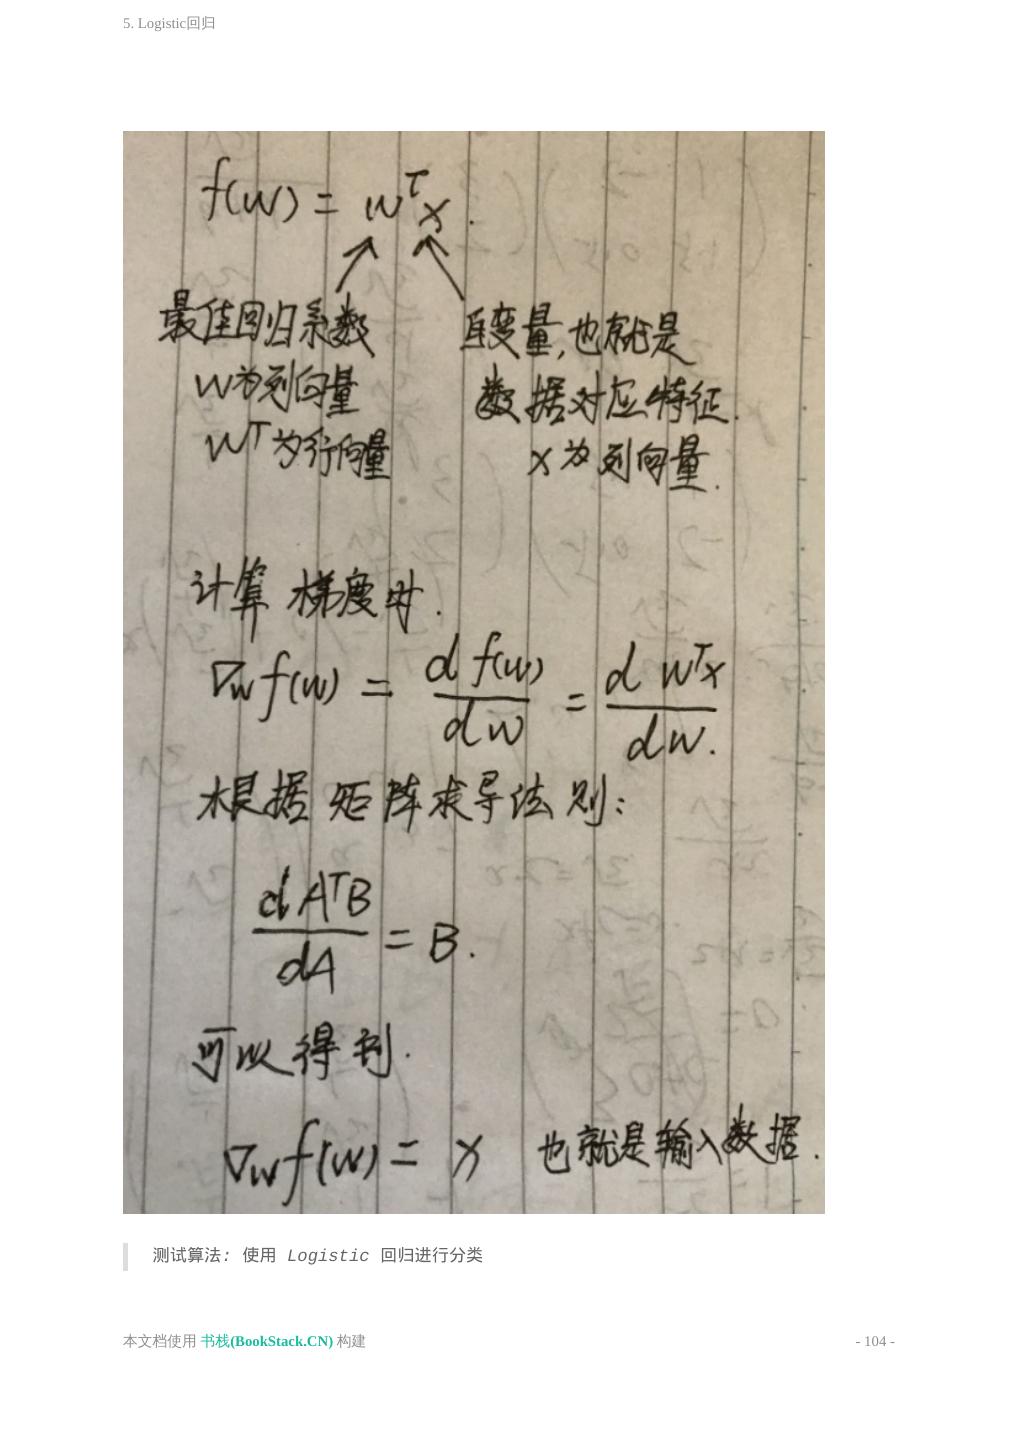 5. Logistic回归
f(w) = wᵀx.
最佳回归系数
w为列向量
wᵀ为行向量
自变量,也就是
数据对应特征.
x为列向量.
计算梯度时.
∇w f(w) = d f(w) / dw = d wᵀx / dw.
根据矩阵求导法则:
dAᵀB / dA = B.
可以得到.
∇w f(w) = x 也就是输入数据.
测试算法: 使用 Logistic 回归进行分类
本文档使用 书栈(BookStack.CN) 构建
- 104 -